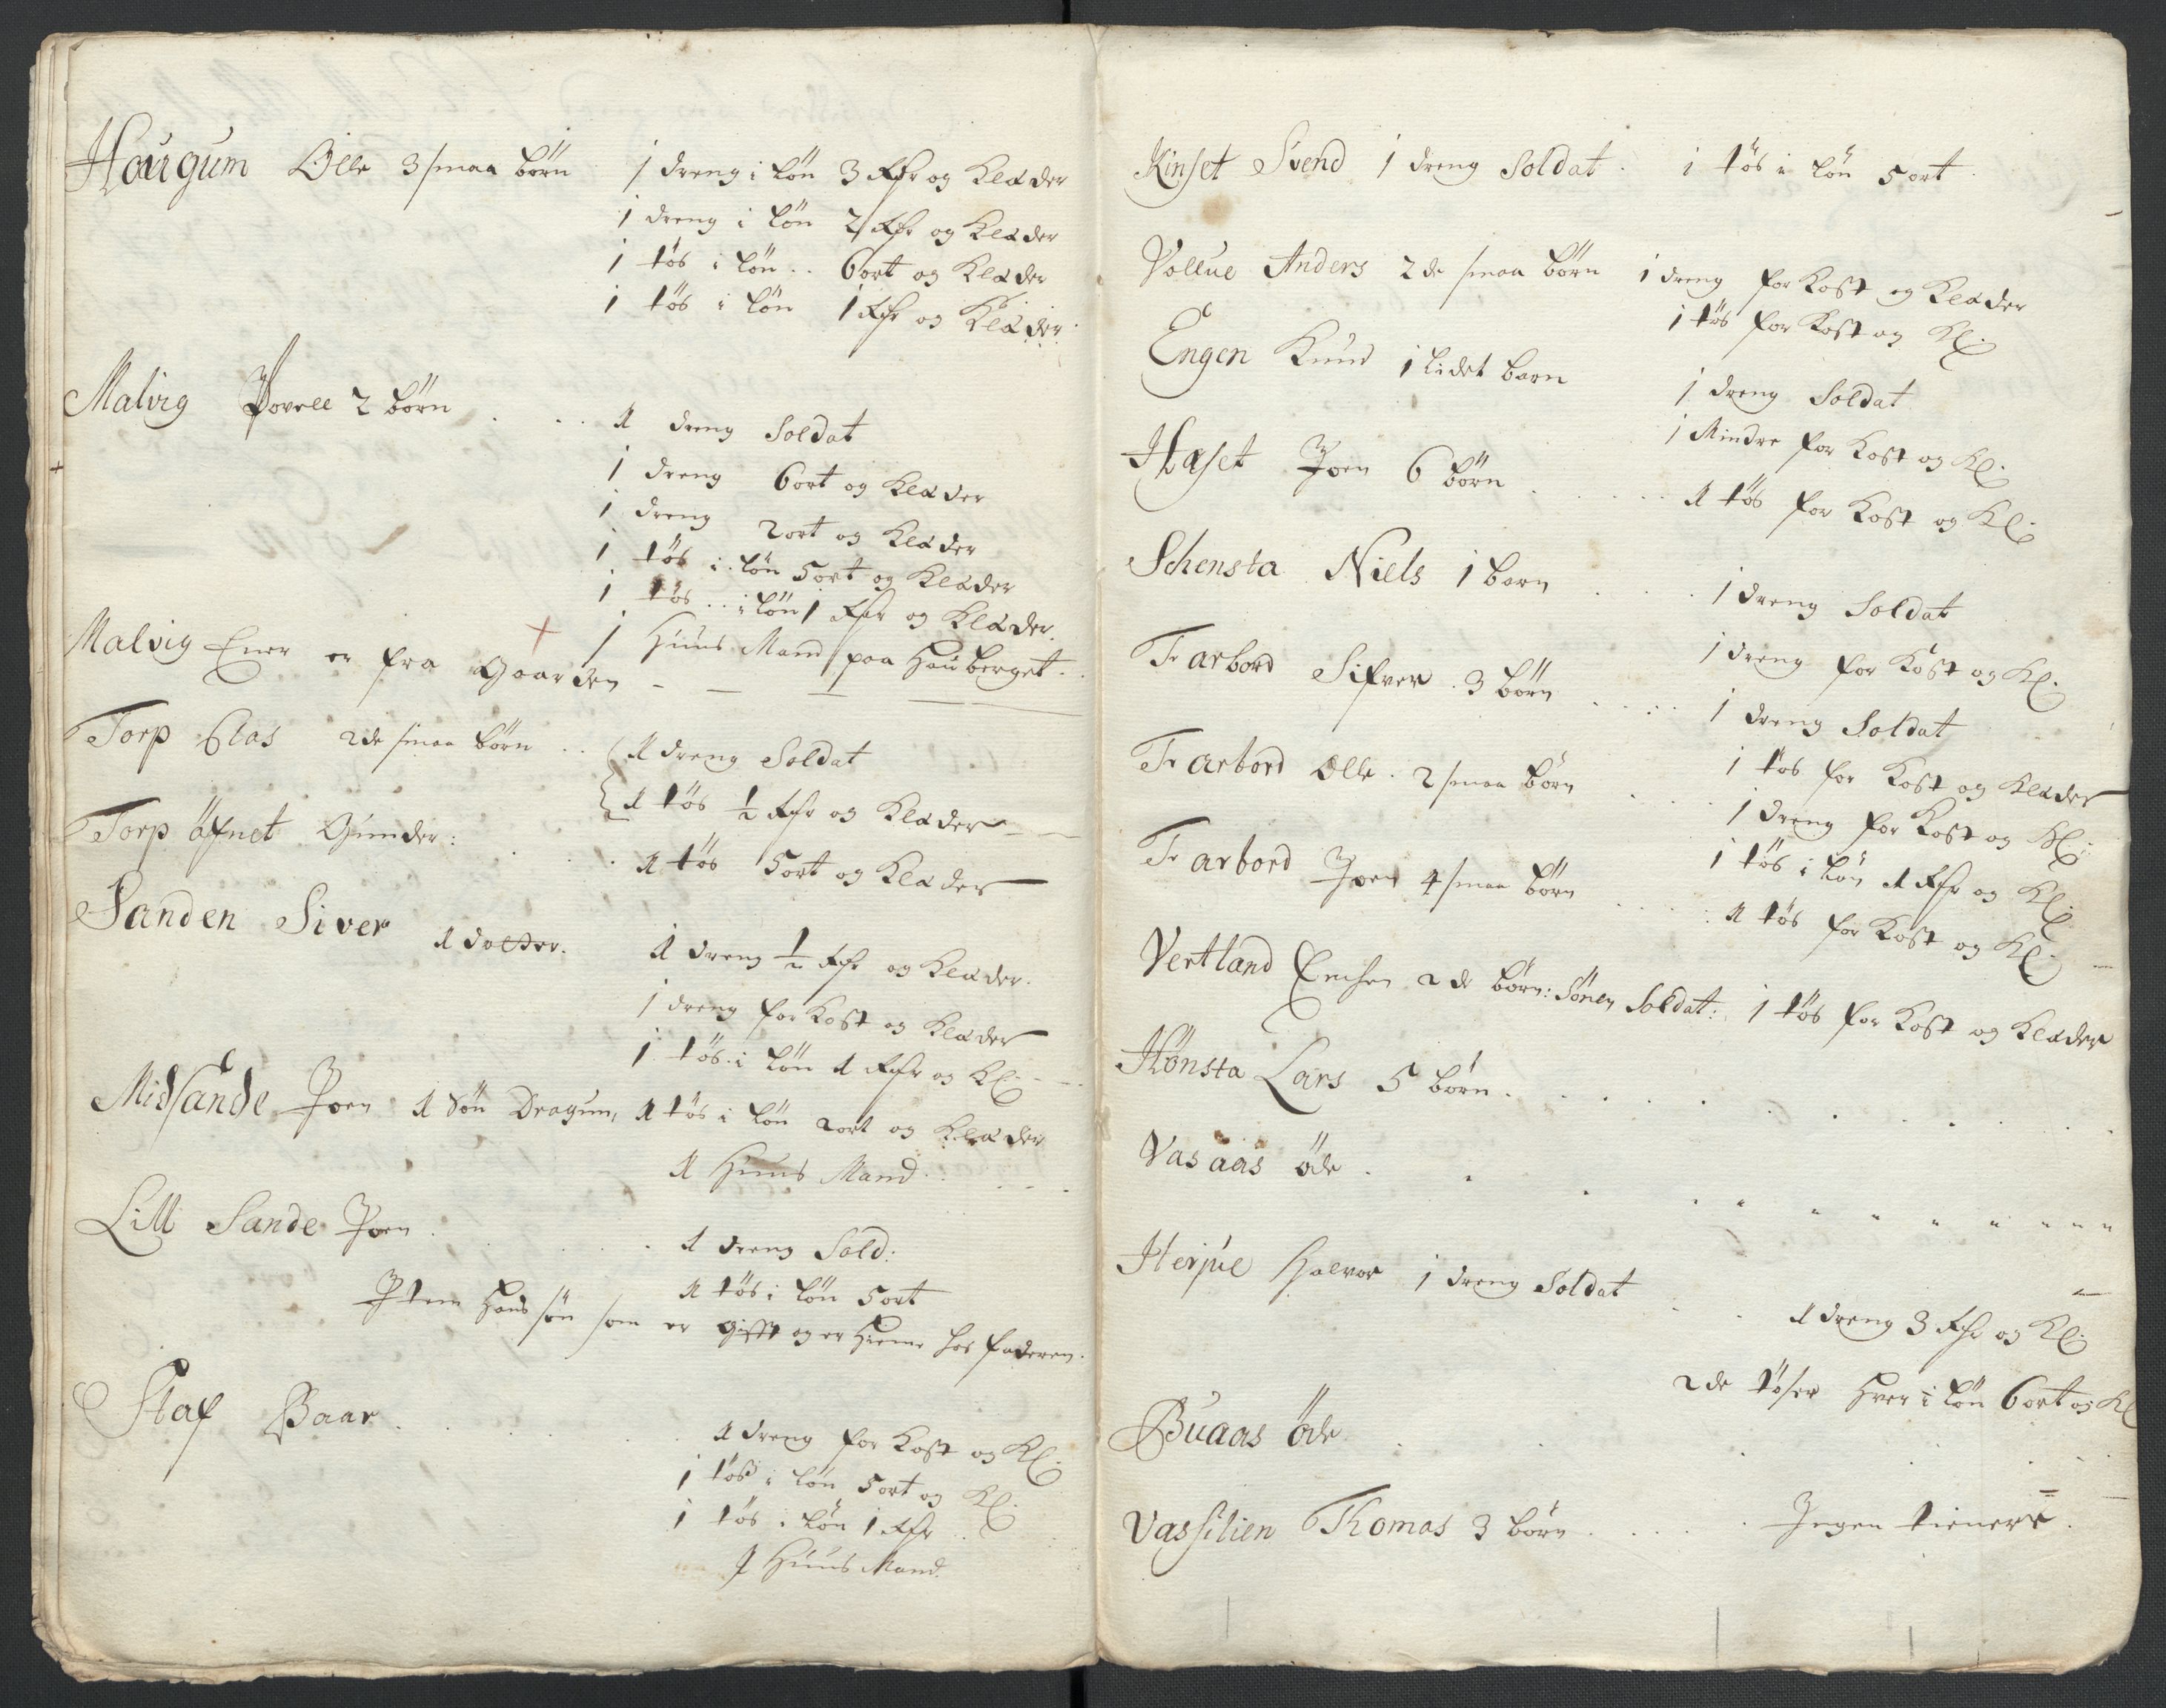 Haugum Olle 3 smaa börn 1 dreng i lön 3 Rdr og Klæder
1 dreng i lön 2 Rdr og Klæder
1 tös i lön .. 6 ort og Klæder
1 tös i lön 1 Rdr og Klæder
Malvig Povell 2 börn . . . 1 dreng Soldat
1 dreng 6 ort og Klæder
1 dreng 2 ort og Klæder
1 tös i lön 5 ort og Klæder
1 tös .. i lön 1 Rdr og Klæder.
1 Huus Mand paa Hauberget.
Malvig Ener er fra Gaarden
Torp Clas 2de smaa börn .. 1 dreng Soldat
1 tös ½ Rdr og Klæder
Torp öfnet Gunder: . . . 1 tös 5 ort og Klæder
Sanden Siver 1 dotter. 1 dreng ½ Rdr og Klæder.
1 dreng for Kost og Klæder
1 tös i lön 1 Rdr og Kl:
Midsande Joen 1 Sön Dragun, 1 tös i lön 2 ort og Klæder
1 Huus Mand
Lill Sande Joen . . . 1 dreng Sold:
1 tös i lön 5 ort
Item Hans sön som er gifft og er Hieme hos faderen.
Staf Baar . . . 1 dreng for Kost og Kl:
1 tös i lön 5 ort og Kl:
1 tös i lön 1 Rdr
1 Huus Mand.
Kinset Svend 1 dreng Soldat . 1 tös i lön 5 ort
Vollue Anders 2de smaa börn 1 dreng for Kost og Klæder
1 tös for Kost og Kl:
Engen Knud 1 lidet barn 1 dreng Soldat
1 Mindre for Kost og Kl:
Haset Joen 6 börn . . . 1 tös for Kost og Kl:
Schensta Niels 1 barn . . . 1 dreng Soldat
1 dreng for Kost og Kl:
Tr arbord Sifver 3 börn . . . 1 dreng Soldat
1 tös for Kost og Klæder
Tr arbord Olle . 2 smaa börn . . . 1 dreng for Kost og Kl:
1 tös i lön 1 Rdr og Kl:
Tr arbord Joen 4 smaa börn . . . 1 tös for Kost og Kl:
Vertland 2de börn: Sönen Soldat: 1 tös for Kost og Klæder
Hönsta Lars 5 börn . . .
Vasaas öde . . .
Herjue Halvor 1 dreng Soldat . . 1 dreng 3 Rdr og Kl:
2de töser Hver i lön 6 ort og Kl
Buaas öde . . .
Vassilien Thomas 3 börn . . . Ingen tienere.